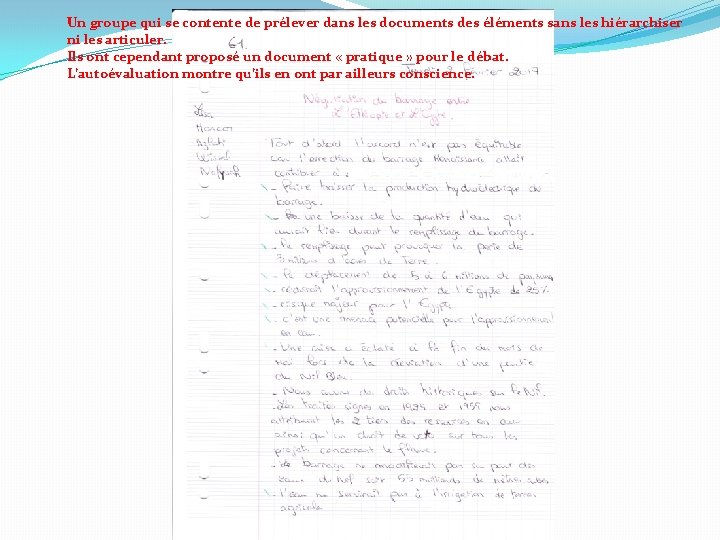 Un groupe qui se contente de prélever dans les documents des éléments sans les hiérarchiser
ni les articuler.
Ils ont cependant proposé un document « pratique » pour le débat.
L'autoévaluation montre qu'ils en ont par ailleurs conscience.
G1.
2017
Négociation du barrage entre
l'Ethiopie et l'Egypte.
Tout d'abord l'accord n'est pas équitable
car l'érection du barrage Renaissance allait
contribuer à :
- Faire baisser la production hydroélectrique du
barrage.
- une baisse de la quantité d'eau qui
aurait lieu durant le remplissage du barrage.
- Le remplissage peut provoquer la perte de
millions d'acres de Terre.
- Le déplacement de 5 à 6 millions de paysans
- réduirait l'approvisionnement de l'Egypte de 25%
- risque majeur pour l'Egypte
- c'est une menace potentielle pour l'approvisionnement
en eau.
- Une crise a éclaté à la fin du mois de
Mai lors de la déviation d'une partie
du Nil Bleu.
- Nous avons des droits historiques sur le Nil.
- Les traités signés en et 1959 nous
attribuent les 2 tiers des ressources en eau
ainsi qu'un droit de veto sur tous les
projets concernant le fleuve.
- barrage ne pas
eaux du Nef sur 55 milliards de mètres cubes
- L'eau ne servirait pas à l'irrigation de terres
agricole